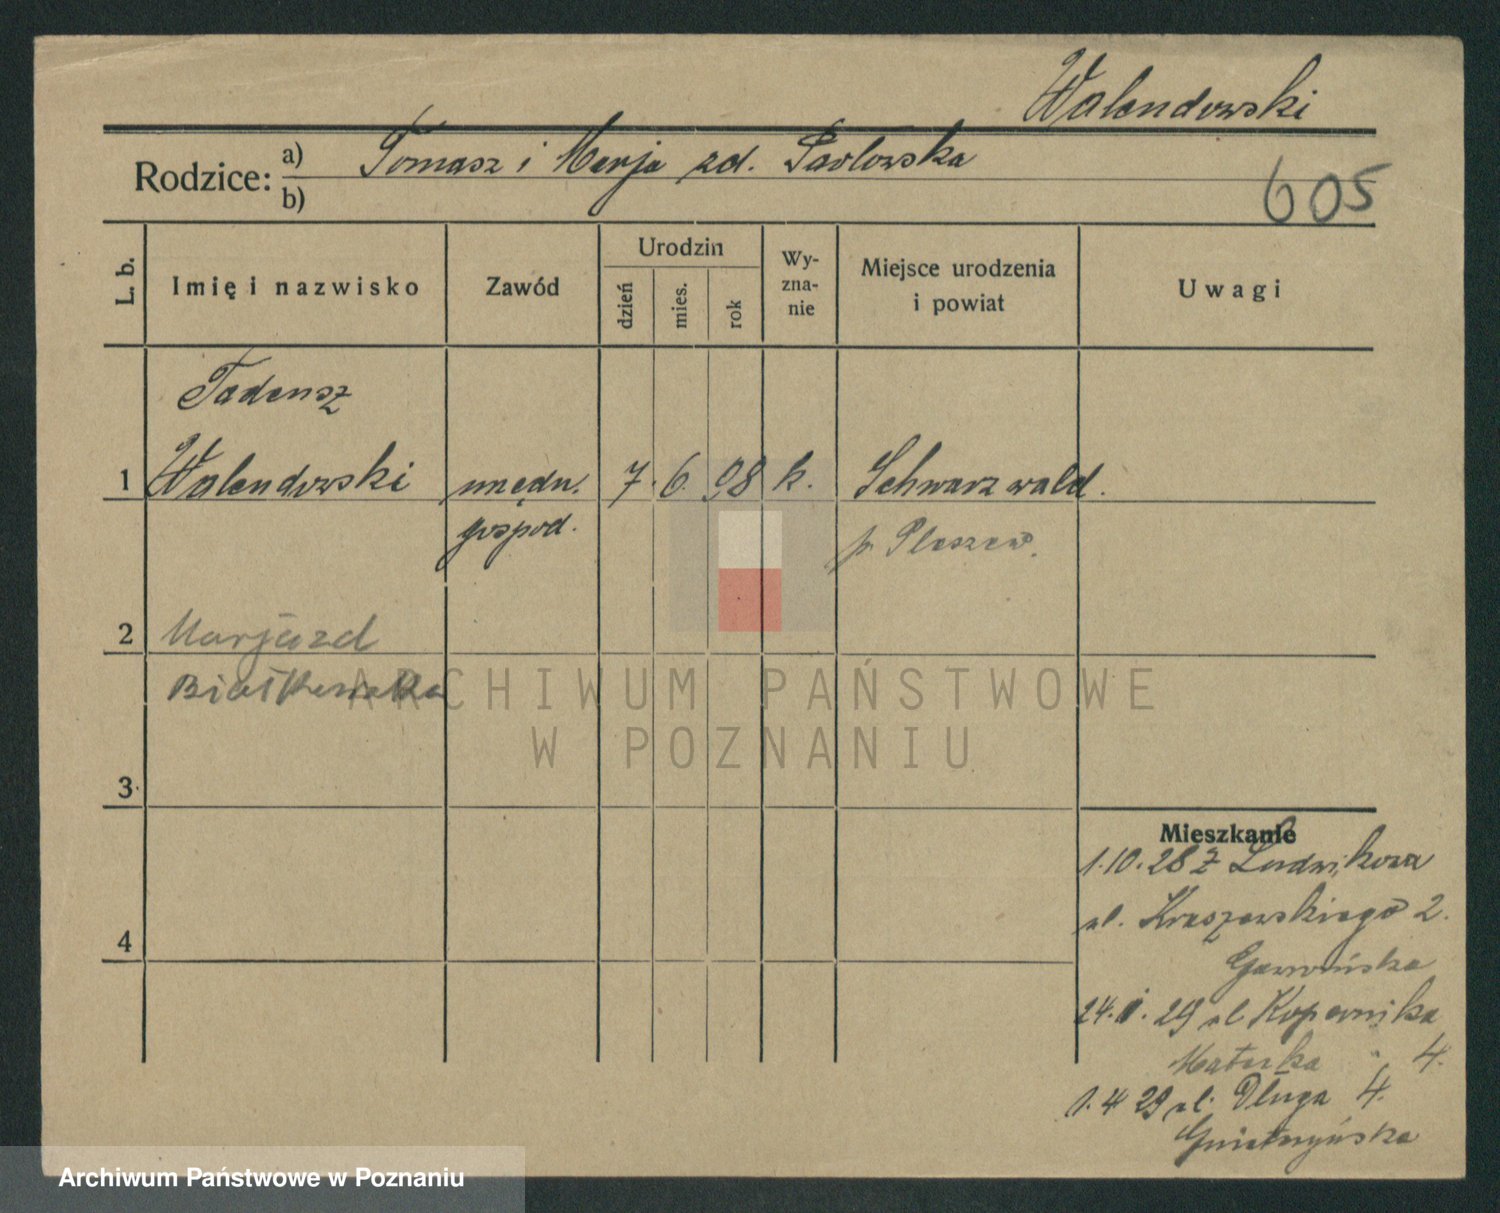 Walendowski
Rodzice: a) Tomasz i Marja zd. Pawlowska
b)
605
L. b.
Imię i nazwisko
Zawód
Urodzin
dzień
mies.
rok
Wy-
zna-
nie
Miejsce urodzenia
i powiat
Uwagi
Tadeusz
1 Walendowski urzędn. 7. 6. 98 k. Schwarzwald.
gospod. p. Pleszew.
2 Marja zd
Białkowska
ARCHIWUM PAŃSTWOWE
W POZNANIU
3
4
Mieszkanie
1.10.28 z Ludwikowa
ul. Kraszewskiego 2.
Gawrońska
24.1.29 ul Kopernika
Matecka 4.
1.4 29 ul. Długa 4.
Archiwum Państwowe w Poznaniu